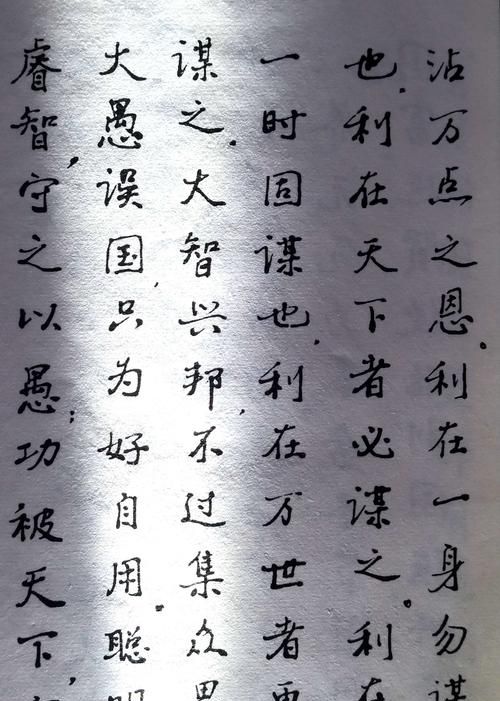 沾万点之恩。利在一身勿谋
也.利在天下者必谋之。利在
一时固谋也.利在万世者更
谋之.大智兴邦,不过集众思
大愚误国,只为好自用。聪明
睿智,守之以愚;功被天下,